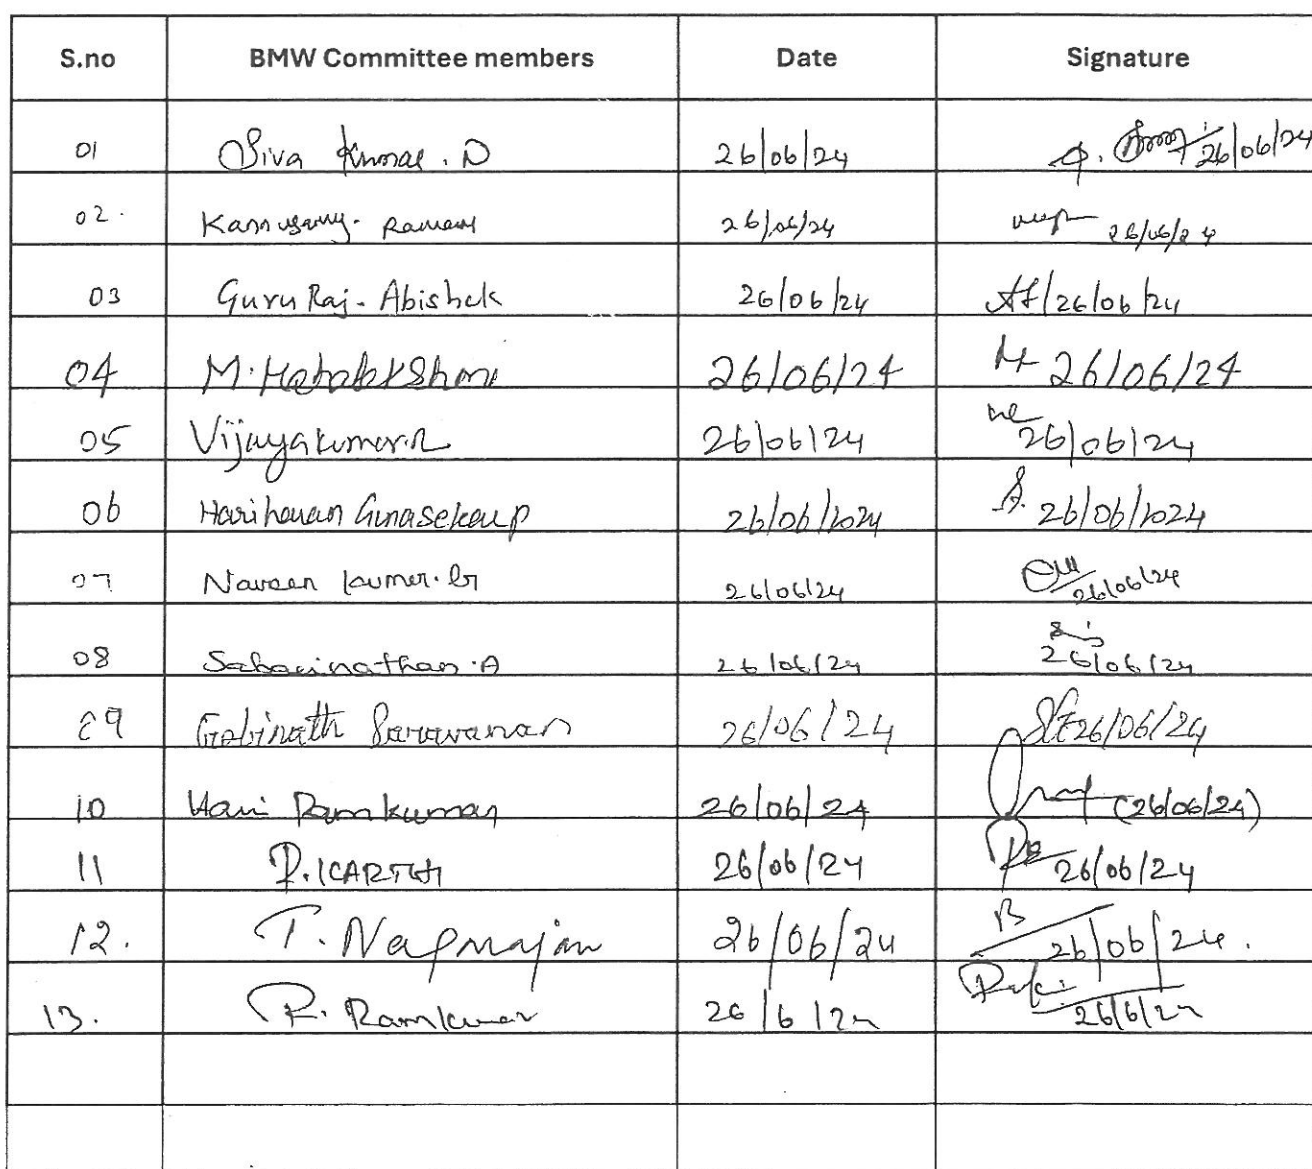 S.no BMW Committee members Date Signature
01 Siva Kumar. D 26/06/24 26/06/24
02. Kannusamy. Raman 26/06/24 26/06/24
03 Guru Raj. Abishek 26/06/24 26/06/24
04 M. Mahalakshmi 26/06/24 26/06/24
05 Vijayakumar.R 26/06/24 26/06/24
06 Hariharan Gunasekaup 26/06/2024 26/06/2024
07 Naveen kumar. G 26/06/24 26/06/24
08 Sabarinathan. A 26/06/24 26/06/24
09 Gobinath Saravanan 26/06/24 26/06/24
10 Hari Ramkumar 26/06/24 (26/06/24)
11 P. KARTHI 26/06/24 26/06/24
12. T. Nagarajan 26/06/24 26/06/24.
13. R. Ramkumar 26/6/24 26/6/24